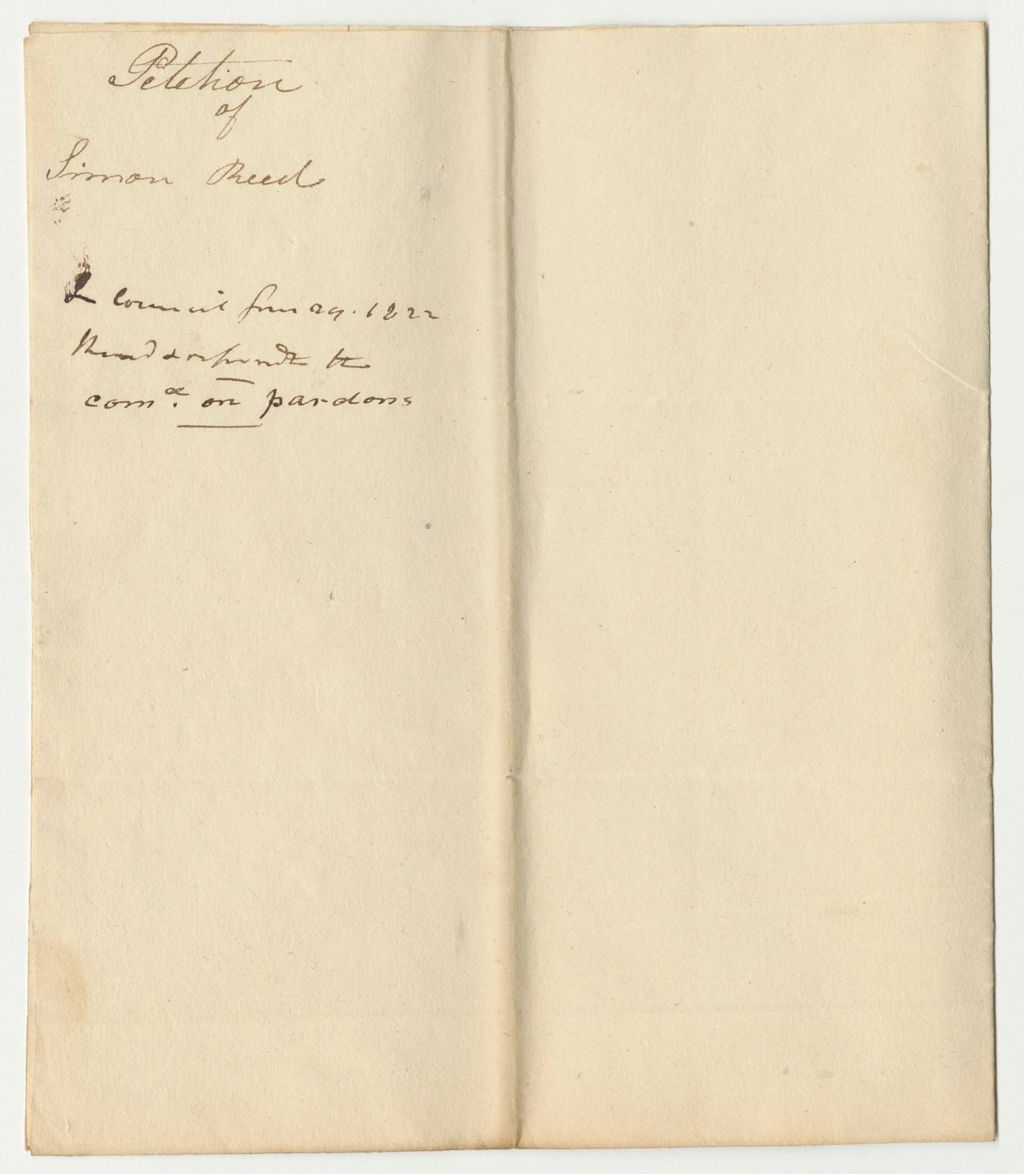 Petition
of
Simon Reed
In Council Jan 29. 1822
Read & refered to the
come. on pardons